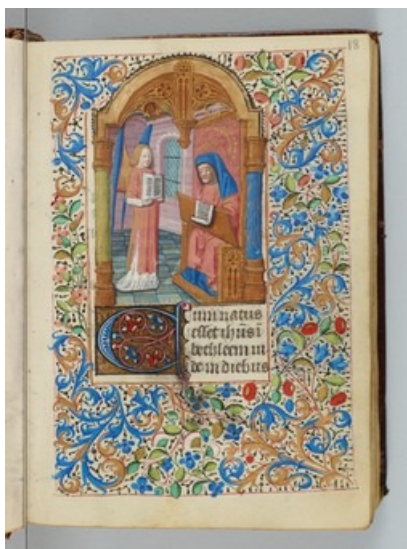 18
Cum natus
esset ihūs ī
bethleem iu
de in diebus